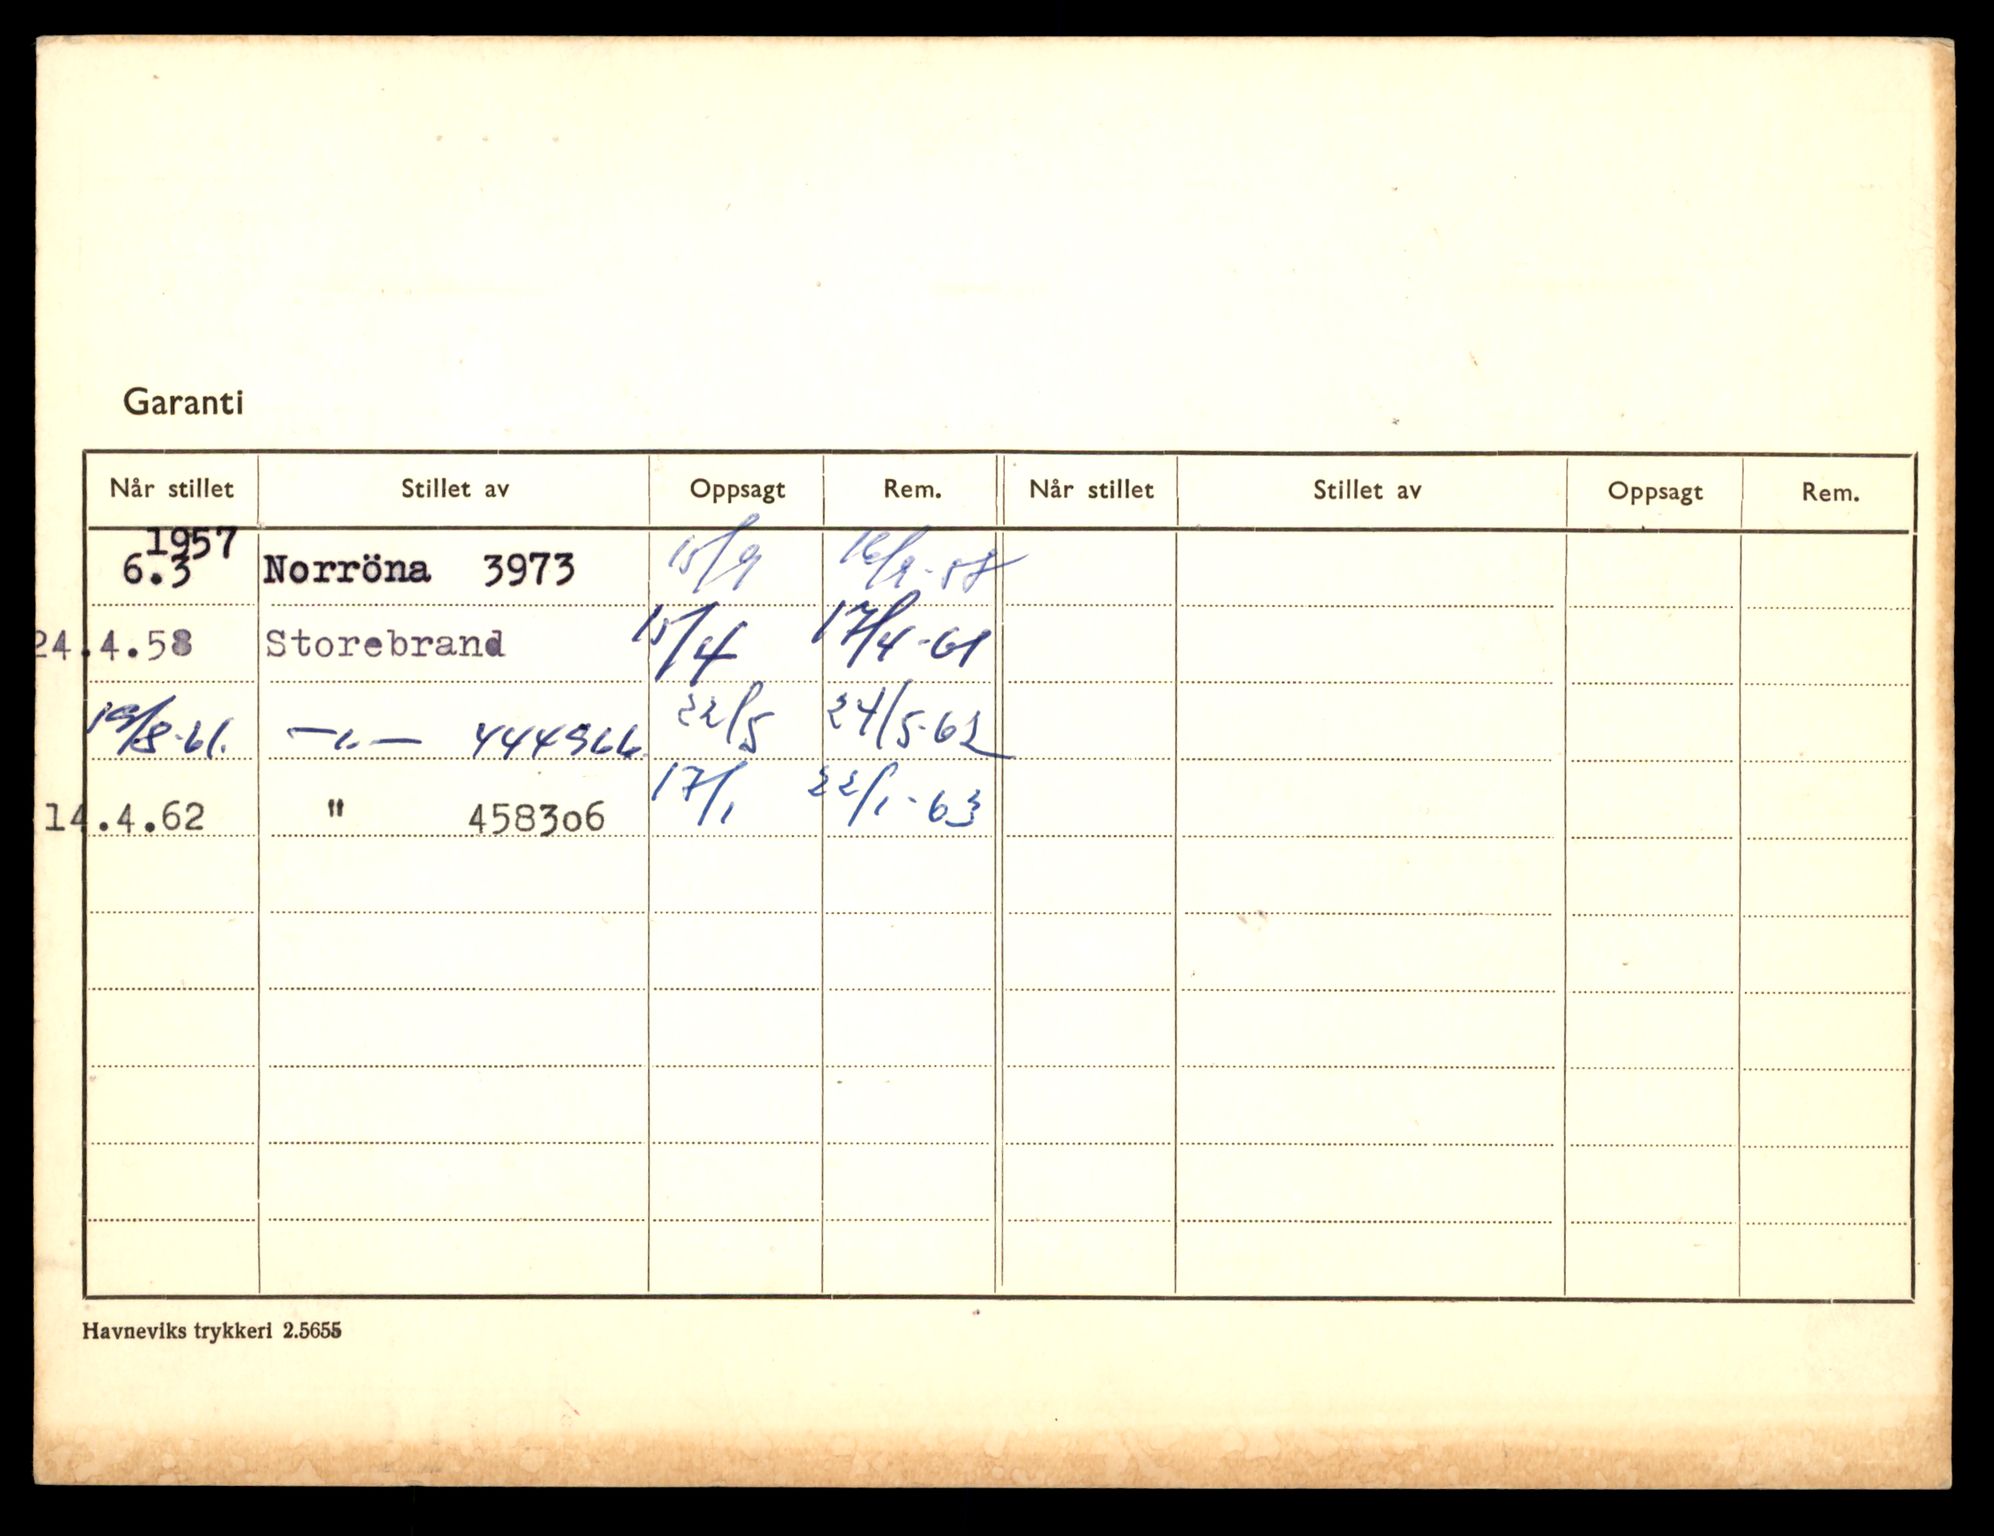 Garanti
Når stillet Stillet av Oppsagt Rem. Når stillet Stillet av Oppsagt Rem.
1957
6.3 Norröna 3973 15/9 16/9-58
24.4.58 Storebrand 15/4 17/4-61
19/8-61. —"— 444966 22/5 24/5-62
14.4.62 " 458306 17/1 22/1-63
Havneviks trykkeri 2.5655